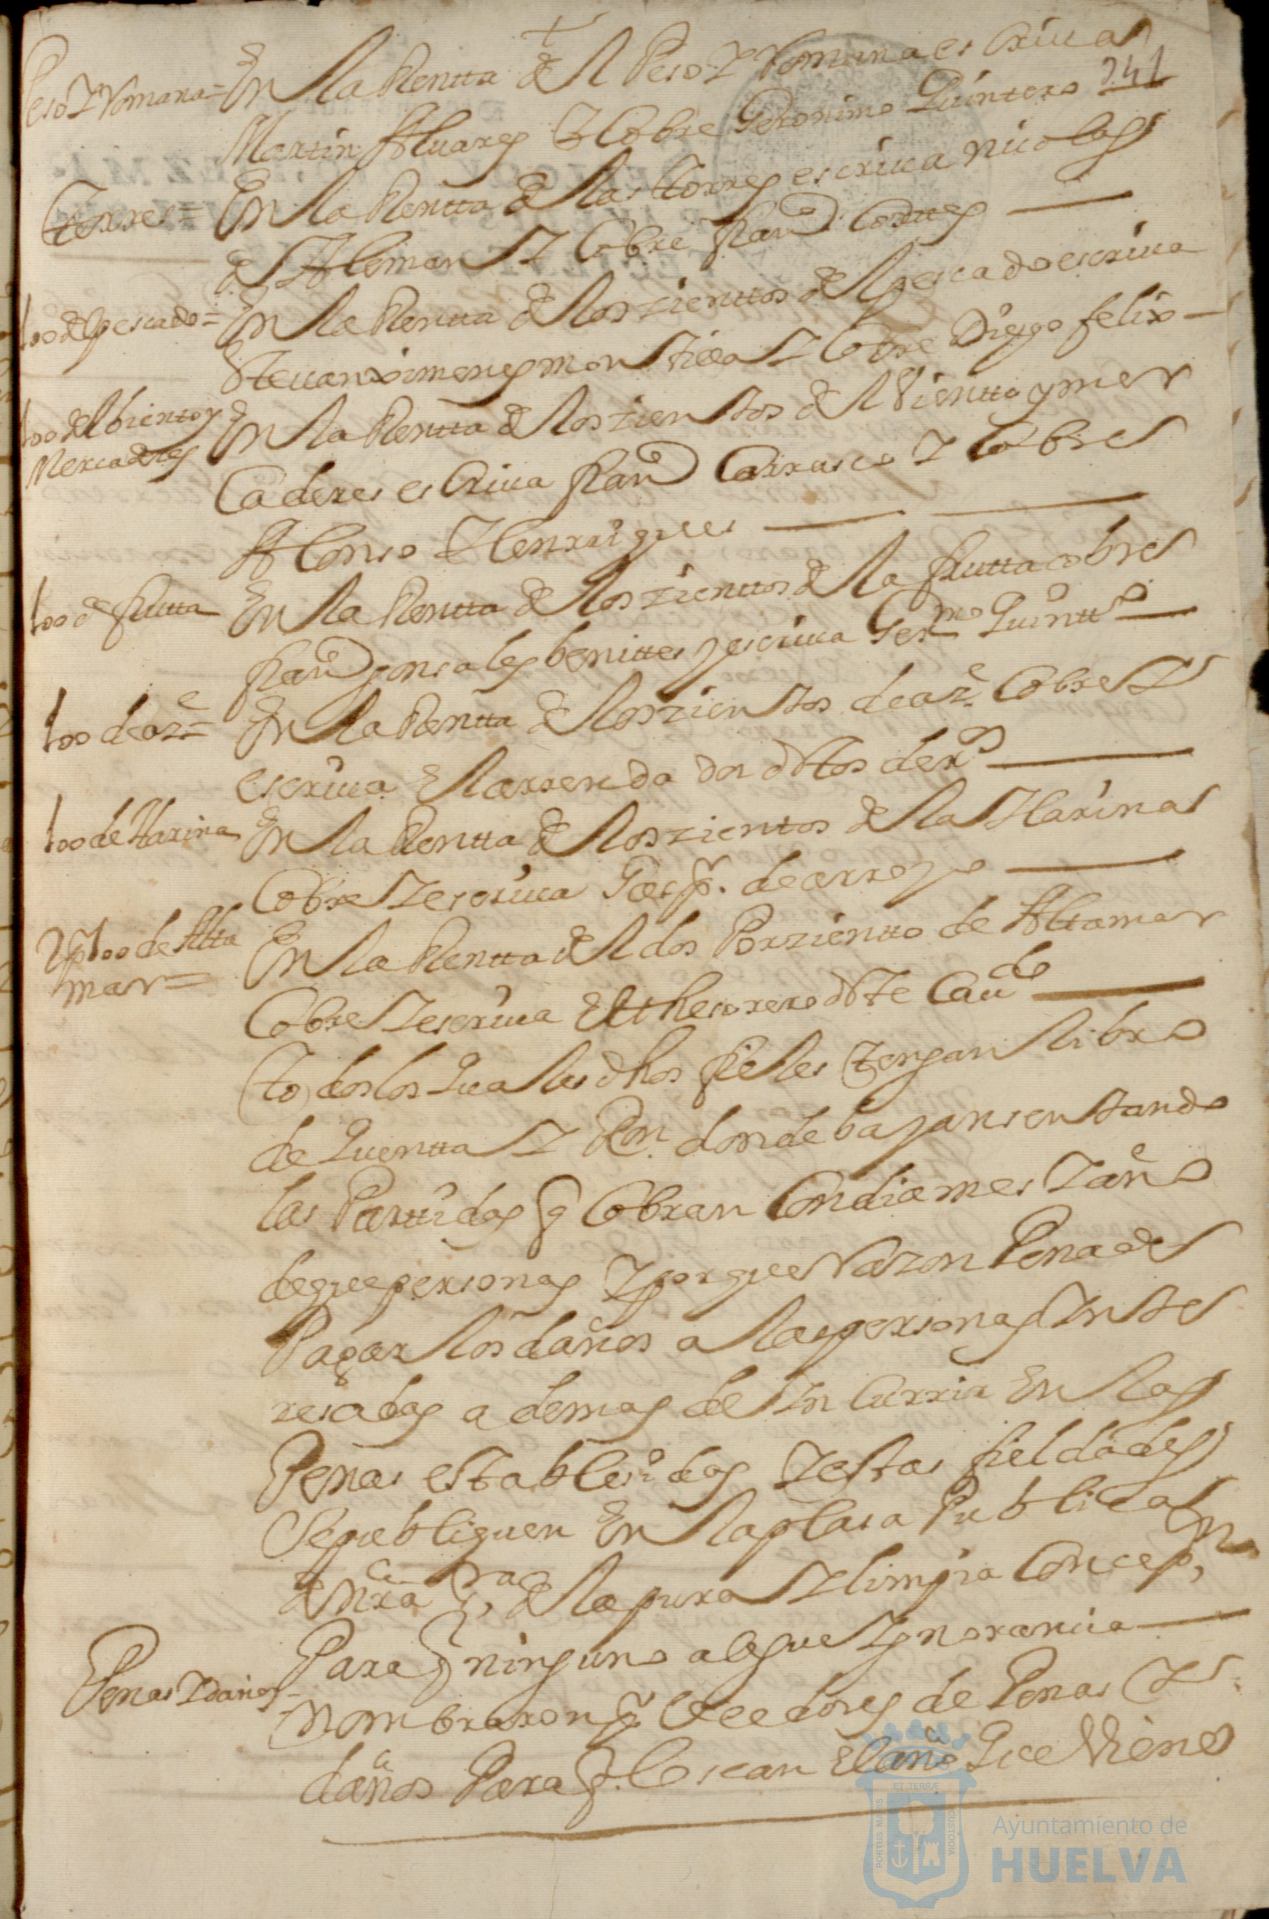 †
241
Peso Y Romana = En la Rentta del Peso Y Romana escriua
Martin Aluares Y Cobre Geronimo Quintero
Torres = En la Rentta de las ttorres escriua nicolas
de Aleman Y Cobre Franco Corttes
100 del pescado = En la Rentta de los zienttos del pescado escriua
Steuan ximenes montiel Y Cobre Diego felix
100 del biento y Mercaderes En la Rentta de los zientos del Vientto y mer
Caderes escriua Franco Carrasco Y Cobre
Alonso Henrriques
100 de frutta En la Rentta de los zienttos de la frutta cobre
Franco gonsales benittes y escriua Germo Quintto
100 de aze = En la Rentta de los zientos de aze Cobre Y
escriua el arrendador dhos der
100 de Harina En la Rentta de los zientos de la Harina
Cobre Y escriua Gaspr. de arroyo
2 p 100 de Alta mar = En la Rentta del dos Por zientto de Alta mar
Cobre Y escriua el thesorero deste Caudo
todos los quales dhos fieles tengan libro
de quentta Y Ron. donde bayan sentando
las Parttidas q Cobran Con dia mes Y año
de que personas Y por que Razon Pena de
Pagar los daños a las personas Ynte
resadas a demas de Yncurrir En las
Penas establesidas Y estas fieldades
Se publiquen En la plasa Publica
de nra Sra de la pura Y limpia Concepn
Para q ninguno alegue Ygnorancia
Penas Y daños = Nombraron pr Veedores de Penas Y
daños Para q. lo sean el año que Viene
ET TERRÆ
PORTUS MARIS
CUSTODIA
Ayuntamiento de
HUELVA